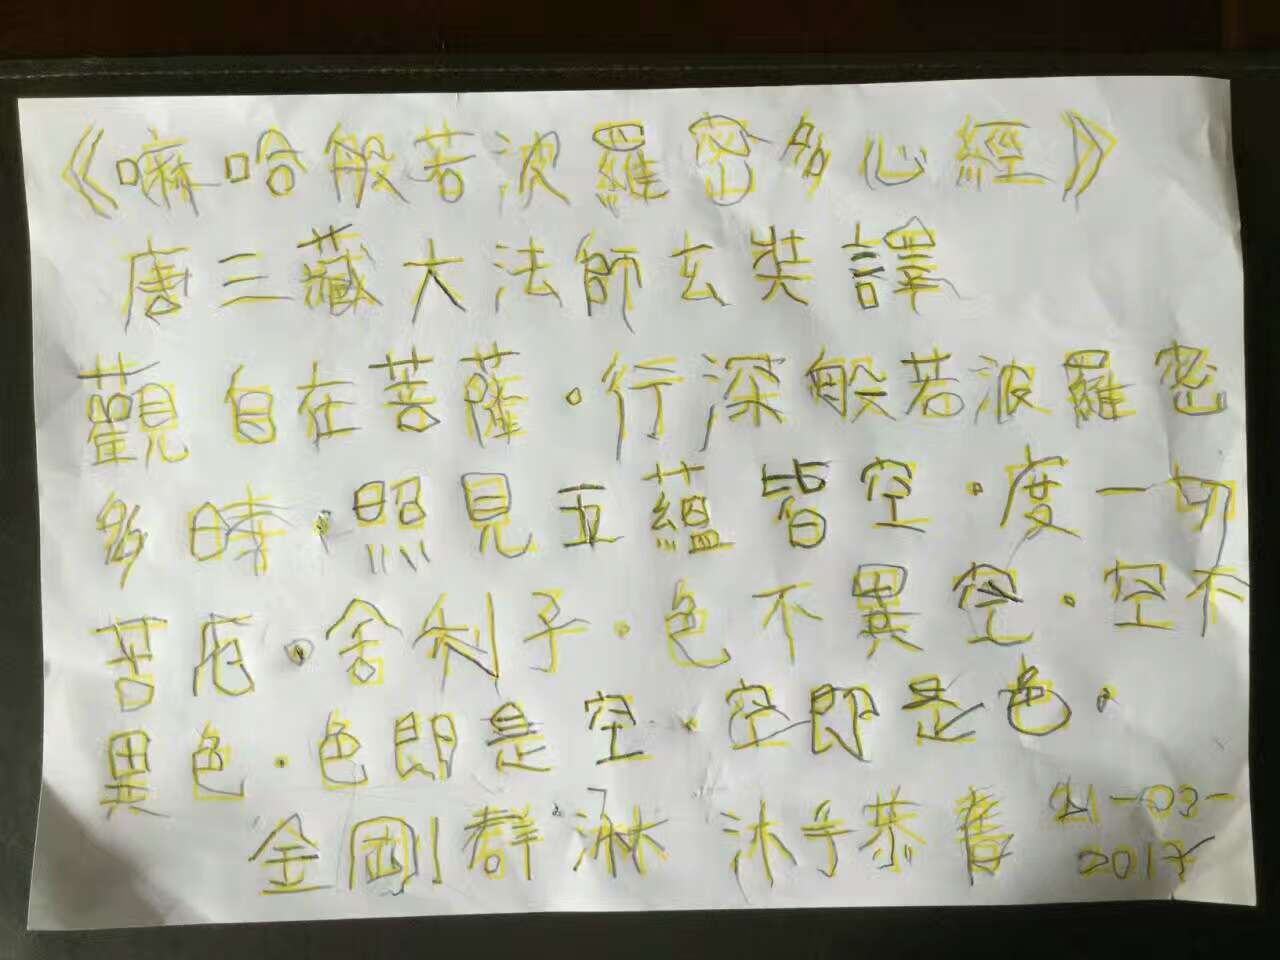 《嘛哈般若波羅密多心經》
唐三藏大法師玄奘譯
觀自在菩薩·行深般若波羅密
多時·照見五蘊皆空·度一切
苦厄·舍利子·色不異空·空不
異色·色即是空·空即是色·
金剛群淋 沐手恭書 21-03-
2017